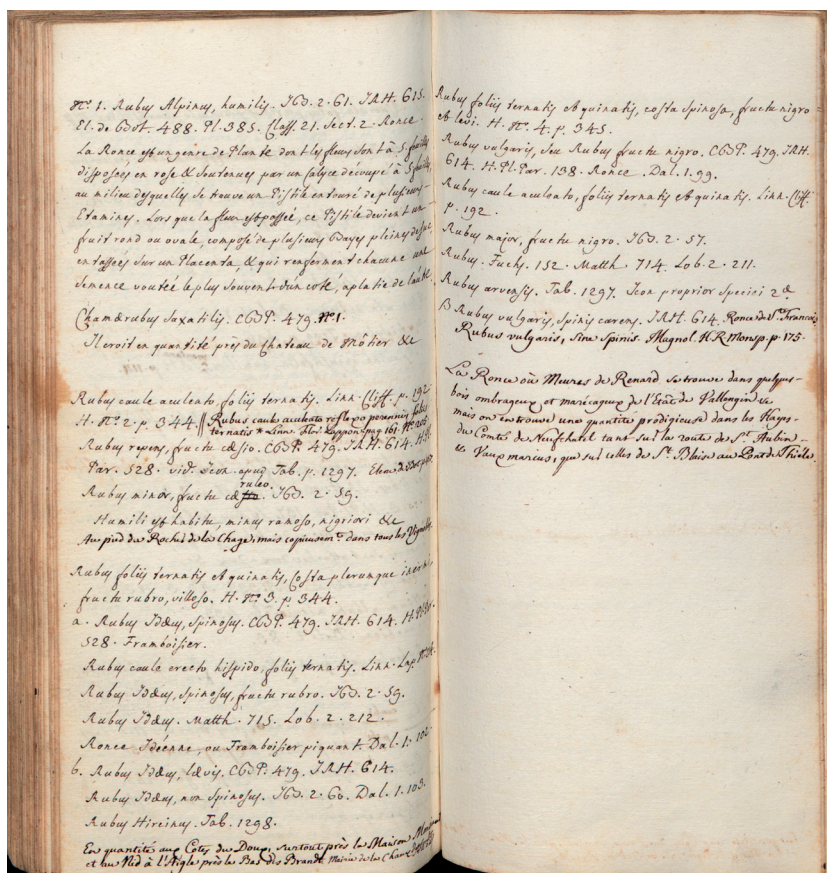 N.º 1. Rubus Alpinus, humilis. JCB. 2. 61. IRH. 615.
El. de Bot. 488. Pl. 385. Class. 21. Sect. 2. Ronce.
La Ronce est un genre de Plante dont les fleurs sont à 5. feuilles
disposées en rose & soutenues par un calyce découpé à 5. feuilles
au milieu desquelles se trouve un Pistile entouré de plusieurs
Etamines. Lors que la fleur est passée, ce Pistile devient un
fruit rond ou ovale, composé de plusieurs Bayes pleines de suc
entassées sur un Placenta, & qui renferment chacune une
semence voutée le plus souvent d'un coté, aplatie de l'autre.
Chamærubus saxatilis. CBP. 479. N.º 1.
Il croit en quantité près du Chateau de Môtier &c
Rubus caule aculeato, foliis ternatis. Linn. Cliff. p. 192
H. N.º 2. p. 344. // Rubus caule aculeato reflexo perennis, foliis
ternatis * Linn. flor. Lappon. pag. 161. N.º 205
Rubus repens, fructu cæsio. CBP. 479. IRH. 614. H. Pl.
Par. 528. vid. Icon. apud Tab. p. 1297.
Rubus minor, fructu cæruleo. JCB. 2. 59.
Humili est habitu, minus ramoso, nigriori &c
Au pied du Rocher de la Chage, mais copieusem.t dans tous les Vignobles.
Rubus foliis ternatis & quinatis, Costa plerumque inermi,
fructu rubro, villoso. H. N.º 3. p. 344.
a. Rubus Idæus, spinosus. CBP. 479. IRH. 614. H. Pl. Par.
528. Framboisier.
Rubus caule erecto hispido, foliis ternatis. Linn. Lap.
Rubus Idæus, spinosus, fructu rubro. JCB. 2. 59.
Rubus Idæus. Matth. 715. Lob. 2. 212.
Ronce Idéenne, ou Framboisier piquant. Dal. 1. 102.
b. Rubus Idæus, lævis. CBP. 479. IRH. 614.
Rubus Idæus, non spinosus. JCB. 2. 60. Dal. 1. 103.
Rubus Hircinus. Tab. 1298.
En quantité aux Cotes du Doux, surtout près la Maison
et au Nid à l'Aigle près le Bas des Brandt Mairie de la Chaux
Rubus foliis ternatis & quinatis, costa spinosa, fructu nigro
& levi. H. N.º 4. p. 345.
Rubus vulgaris, seu Rubus fructu nigro. CBP. 479. IRH.
614. H. Pl. Par. 138. Ronce. Dal. 1. 99.
Rubus caule aculeato, foliis ternatis & quinatis. Linn. Cliff.
p. 192.
Rubus major, fructu nigro. JCB. 2. 57.
Rubus. Fuchs. 152. Matth. 714. Lob. 2. 211.
Rubus arvensis. Tab. 1297. Icon proprior Speciei 2.æ
β Rubus vulgaris, spinis carens. IRH. 614. Ronce de S.t François
Rubus vulgaris, sine spinis. Magnol. H.R. Monsp. p. 175.
La Ronce où Meures de Renard se trouve dans quelques
bois ombrageux et marécageux de l'Etat de Vallengin &
mais on en trouve une quantité prodigieuse dans les Hayes
du Comté de Neufchatel tant sur la route de S.t Aubin
et Vaux marcus, que sur celles de S.t Blaise au Pont de Thiele.